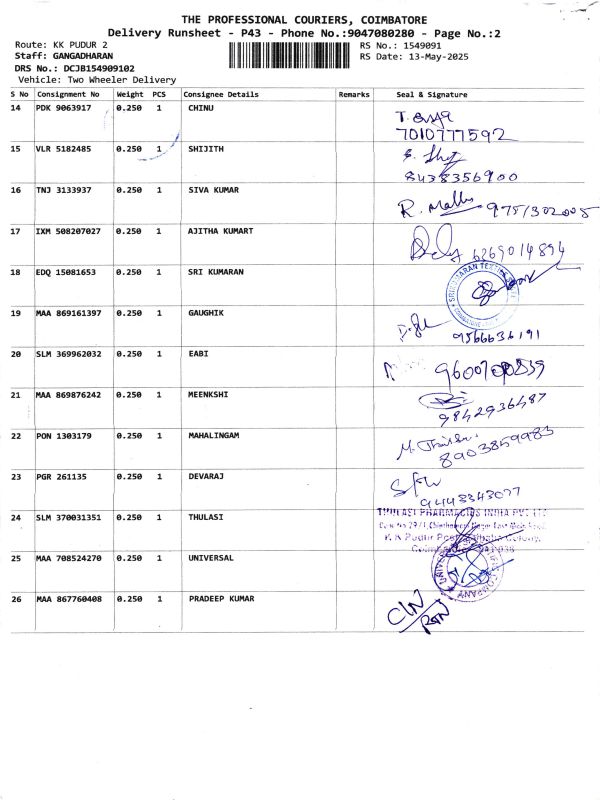 THE PROFESSIONAL COURIERS, COIMBATORE
Delivery Runsheet - P43 - Phone No.:9047080280 - Page No.:2
Route: KK PUDUR 2
RS No.: 1549091
Staff: GANGADHARAN
RS Date: 13-May-2025
DRS No.: DCJB154909102
Vehicle: Two Wheeler Delivery
S No Consignment No Weight PCS Consignee Details Remarks Seal & Signature
14 PDK 9063917 0.250 1 CHINU
7010777592
15 VLR 5182485 0.250 1 SHIJITH
8438356900
16 TNJ 3133937 0.250 1 SIVA KUMAR
R. 9751302005
17 IXM 508207027 0.250 1 AJITHA KUMART
6369014894
18 EDQ 15081653 0.250 1 SRI KUMARAN
19 MAA 869161397 0.250 1 GAUGHIK
9566636191
20 SLM 369962032 0.250 1 EABI
21 MAA 869876242 0.250 1 MEENKSHI
9842936487
22 PON 1303179 0.250 1 MAHALINGAM
8903859983
23 PGR 261135 0.250 1 DEVARAJ
9443343077
24 SLM 370031351 0.250 1 THULASI
THULASI PHARMACIES INDIA PVT LTD
25 MAA 708524270 0.250 1 UNIVERSAL
26 MAA 867760408 0.250 1 PRADEEP KUMAR
C/N
RTN